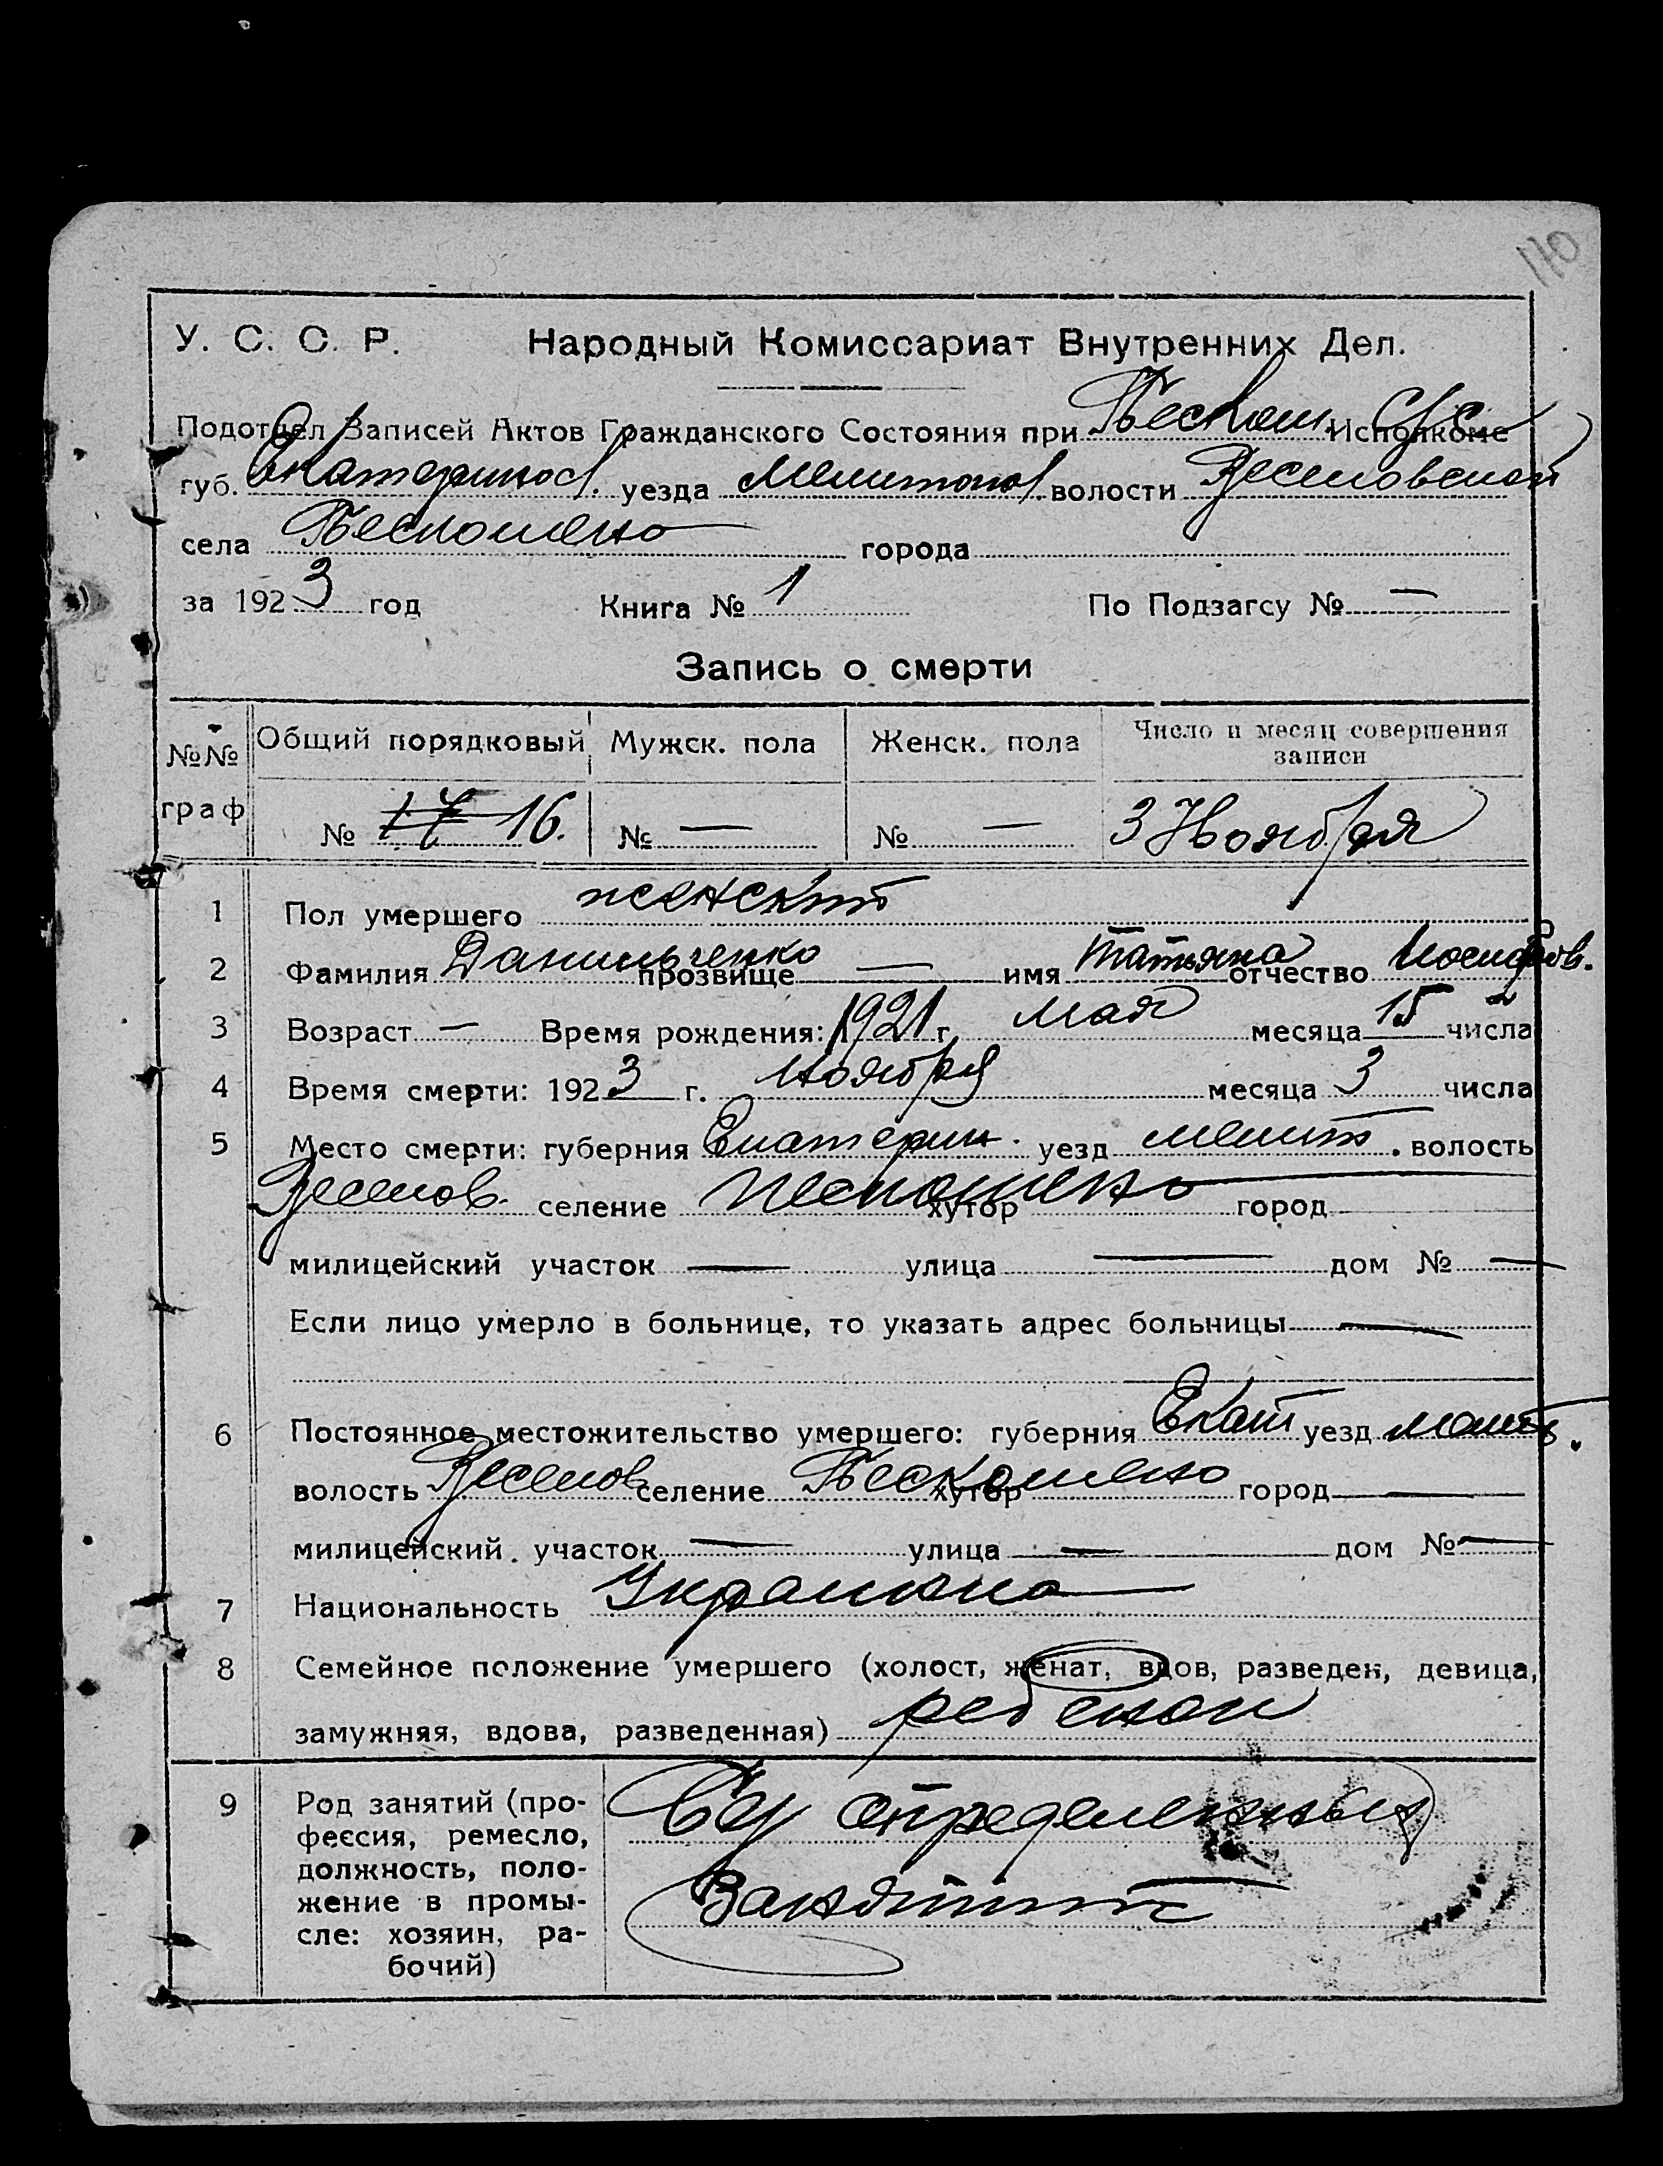 110
У. С. С. Р. Народный Комиссариат Внутренних Дел.
Подотдел Записей Актов Гражданского Состояния при Бескош. Исполкоме
губ. Екатеринос. уезда Мелитопол. волости Веселовской
села Бескошено города
за 1923 год Книга № 1 По Подзагсу № —
Запись о смерти
№№ граф Общий порядковый Мужск. пола Женск. пола Число и месяц совершения записи
№ 17 16. № — № — 3 Ноября
1 Пол умершего женский
2 Фамилия Данильченко прозвище — имя Татьяна отчество Иосифов.
3 Возраст — Время рождения: 1921 г. мая месяца 15 числа
4 Время смерти: 1923 г. ноября месяца 3 числа
5 Место смерти: губерния Екатерин. уезд мелит. волость
Веселов. селение Бескошено хутор город
милицейский участок — улица — дом № —
Если лицо умерло в больнице, то указать адрес больницы —
6 Постоянное местожительство умершего: губерния Екат уезд мелит.
волость Веселов селение Бескошено хутор город —
милицейский участок — улица — дом № —
7 Национальность Украинка
8 Семейное положение умершего (холост, женат, вдов, разведен, девица,
замужняя, вдова, разведенная) ребенок
9 Род занятий (про-
фессия, ремесло,
должность, поло-
жение в промы-
сле: хозяин, ра-
бочий)
Без определенных
Занятий